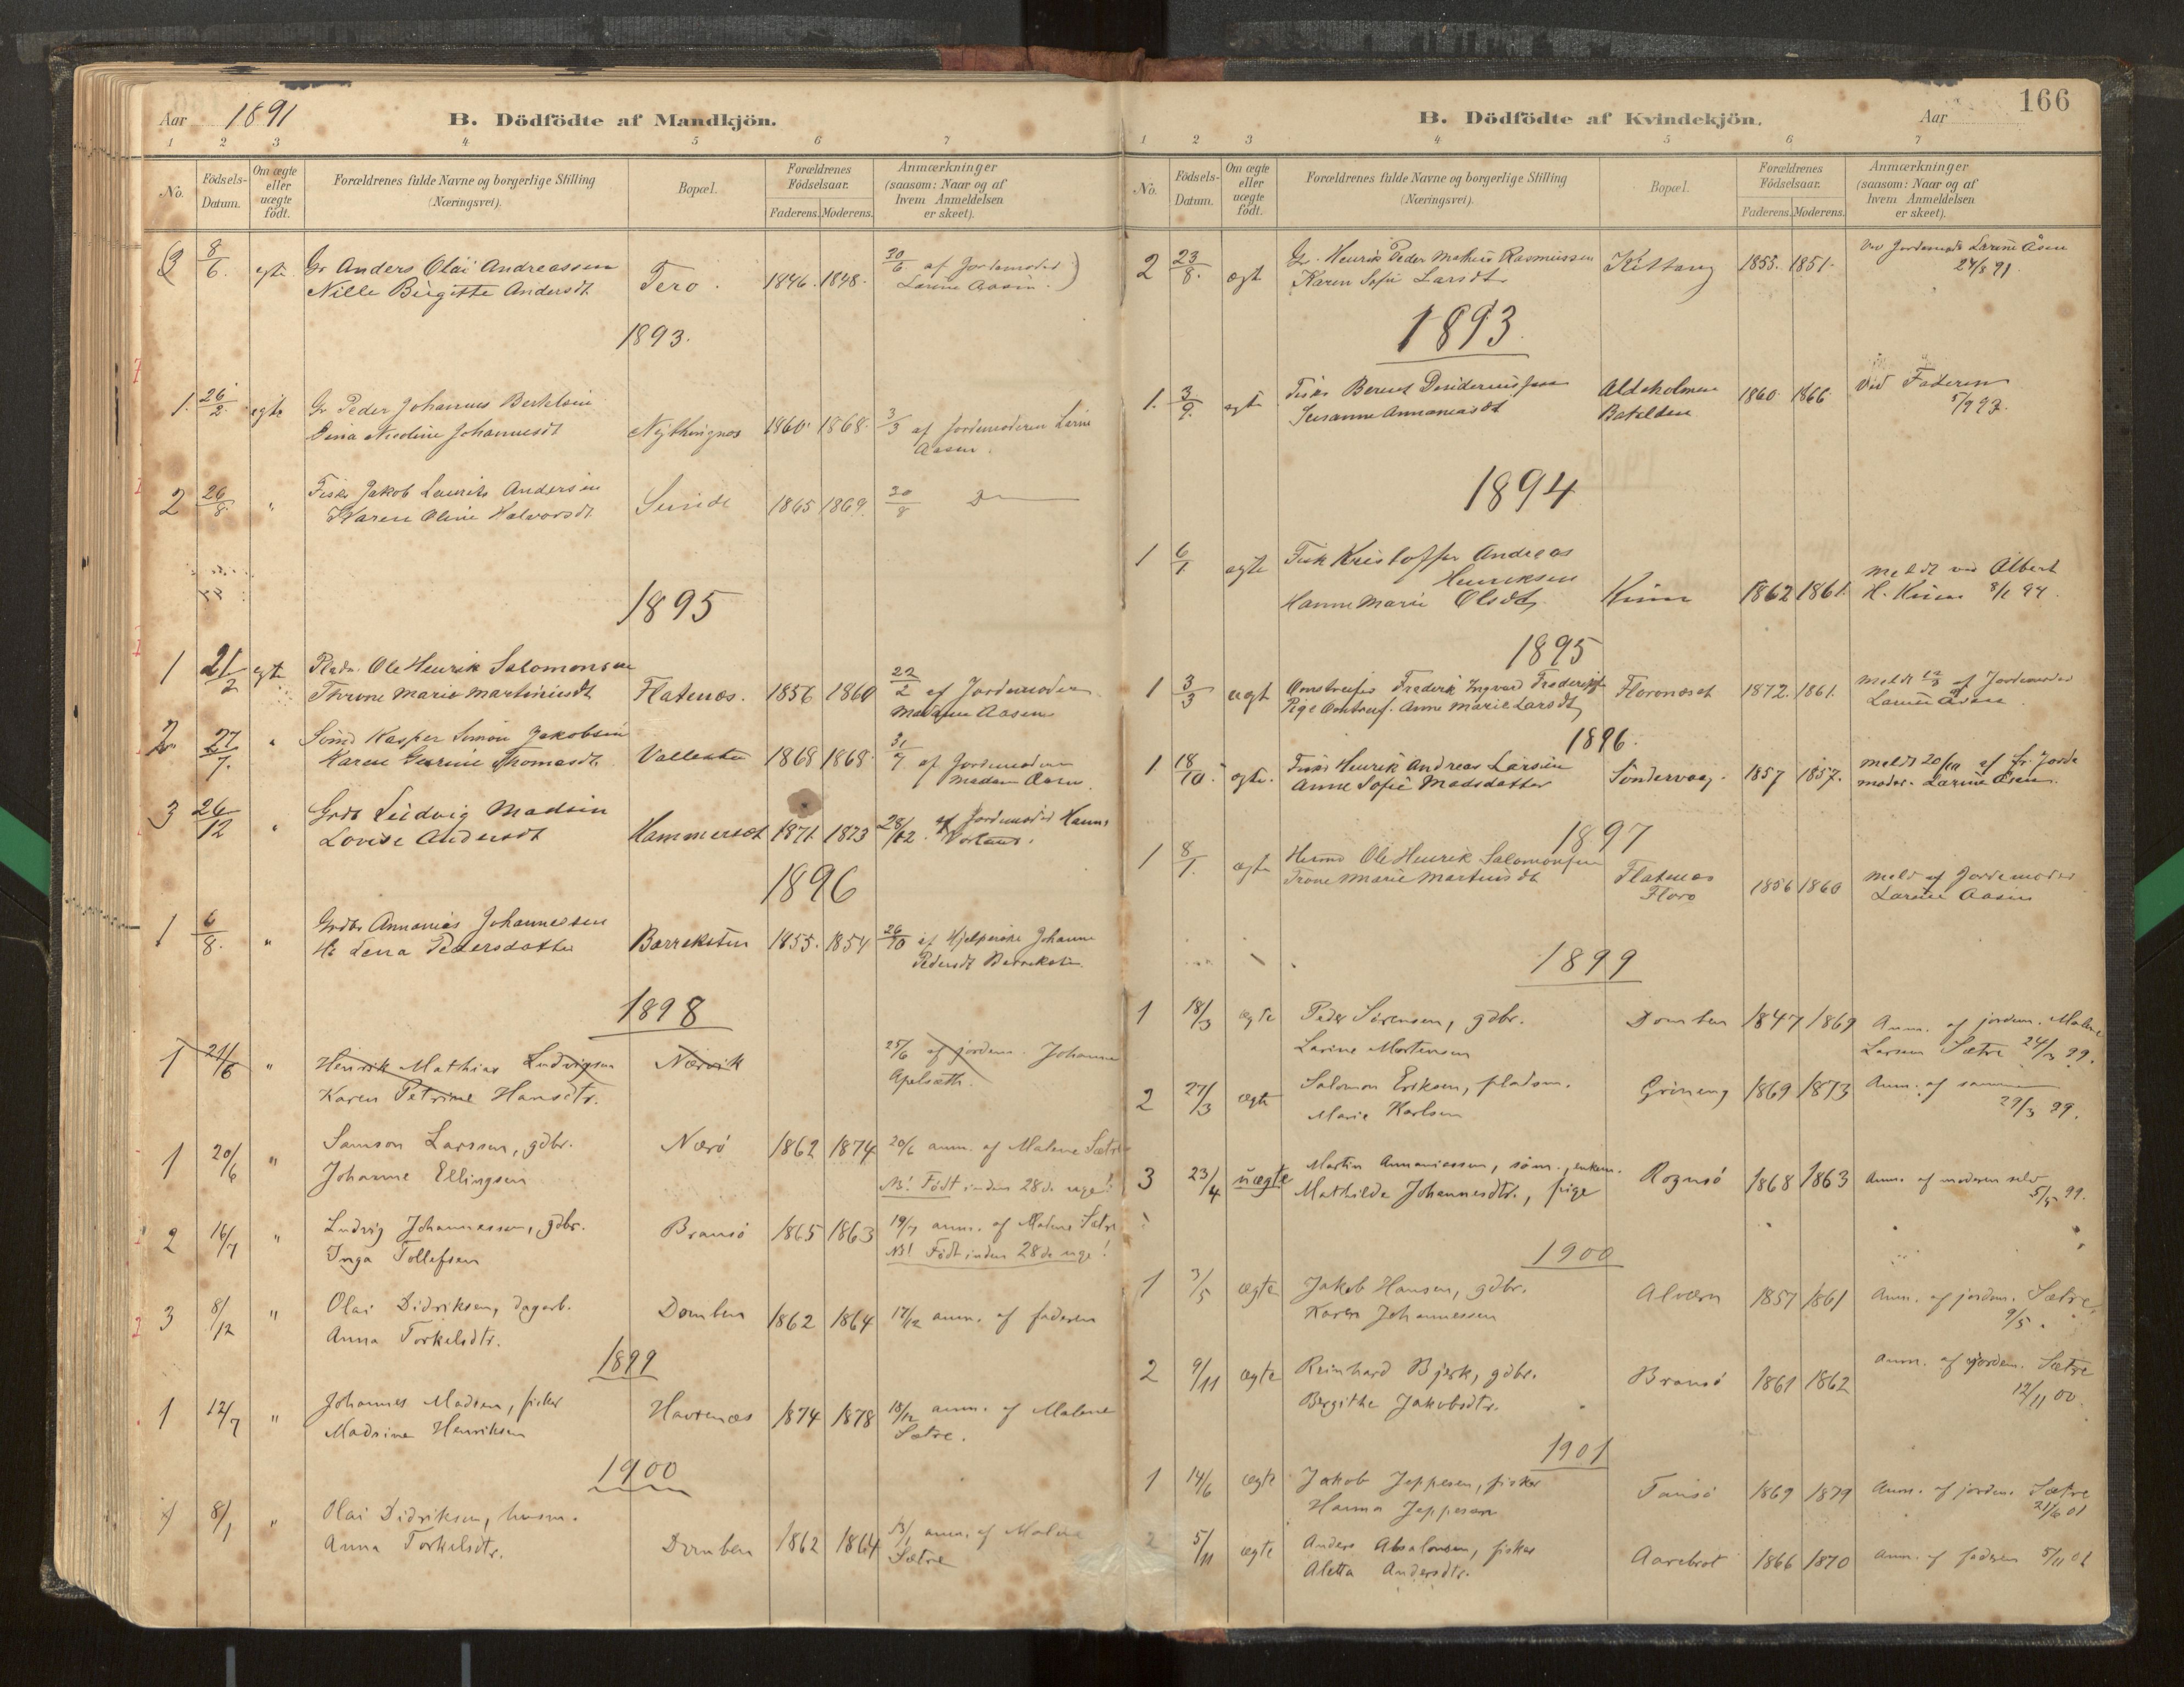 Aar 1891
B. Dödfödte af Mandkjön.
1 2 3 4 5 6 7
No.
Födsels-Datum.
Om ægte eller uægte födt.
Forældrenes fulde Navne og borgerlige Stilling
(Næringsvei).
Bopæl.
Forældrenes Födselsaar.
Faderens. Moderens.
Anmærkninger
(saasom: Naar og af
hvem Anmeldelsen
er skeet).
(3 8/6. egte Gr Anders Olai Andreassen
Nille Birgitte Andersdt Terø. 1846. 1848. 30/6 af Jordemoder
Larine Aasen.)
1893.
1. 26/2. egte Gr Peder Johannes Bertelsen
Johannesdt 1860. 1868. 3/3 af Jordemoderen Larine
Aasen.
2 26/8. " Fisk. Jakob Laurits Andersen
Karen Oline Halvorsdt Sunde 1865 1869. 30/8
1895
1 21/2 egte Pladsm. Ole Henrik Salomonsen
Throne Marie Martinusdt Flatenæs. 1856 1860 22/2 af Jordemoder
Madame Aasen
2. 27/7. " Kasper Simon Jakobsen
Karen Thomasdt. 1868 1868. 31/7 af Jordemoderen
Madam Aasen.
3 26/12 " Grdb Ludvig Madsen
Lovise Andersdt Hammerset 1871. 1873 28/12. af Jordemoder Hanna
1896
1 6/8. " Grdbr Annanias Johannessen
Hu Lena Pedersdatter Barreksten 1855. 1854 26/10 af Hjelperske Johanne
Pedersdt Barrekstn
1898
1 21/6 " Henrik Mathias Ludvigsen Nærvik 25/6 af jordem. Johanne
Karen Petrine Hansdtr. Apelsæth.
1 20/6 " Samson Larssen, gdbr. Nærø 1862 1874 20/6 anm. af Malene Sætre
Johanne Ellingsen NB! Født inden 28de uge!
2 16/7 " Ludvig Johannessen, gdbr. Bransø 1865 1863 19/7 anm. af Malene Sætre
Inga Tollefsen NB! Født inden 28de uge!
3 8/12 " Olai Didriksen, dagarb. Domben 1862 1864 17/12 anm. af faderen
Anna Torkelsdtr.
1899
1 12/7 " Johannes Madsen, fisker Havrenæs 1874 1878 18/12 anm. af Malene
Madsine Henriksen Sætre.
1900
1 8/1 " Olai Didriksen, husm.
Anna Torkelsdtr. Domben 1862 1864 13/1 anm. af Malene
Sætre
166
B. Dödfödte af Kvindekjön.
Aar
1 2 3 4 5 6 7
No.
Födsels-Datum.
Om ægte eller uægte födt.
Forældrenes fulde Navne og borgerlige Stilling
(Næringsvei).
Bopæl.
Forældrenes Födselsaar.
Faderens. Moderens.
Anmærkninger
(saasom: Naar og af
hvem Anmeldelsen
er skeet).
2 23/8. ægt Gr. Henrik Peder Mathias Rasmussen
Karen Sofie Larsdt Kittang 1855. 1851. Ved Jordemoder Larine Åsen
24/8 91
1893
1. 3/9. egt Fisker Berent Desideriussen Aldeholmen
Susanne Annaniasdt Batalden 1860. 1866. Ved Faderen
5/9 93.
1894
1 6/1 ægte Fisk Kristoffer Andreas
Henriksen
Hanne Marie Olsdt Kinn 1862 1861. Meldt ved Albert
H. Kinn 8/1 94.
1895
1 3/3 uegt Frederik Ingvar Frederiksen
Pige Anne Marie Larsdt Florenæset 1872. 1861. Meldt af Jordemoder
Larine Åsen.
1896.
1 18/10. egte. Fisker Henrik Andreas Larsen
Anne Sofie Madsdatter Søndervaag. 1857 1857. Meldt 20/10 af fr. Jorde
moder. Larine Åsen.
1897
1 8/1. ægte Husmd Ole Henrik Salomonsen
Trone Marie Martinsdt Flatenæs
Florø 1856 1860 Meld af Jordemoder
Larine Aasen
1899
1 18/3 ægte Peder Sørensen, gdbr. Domben 1847 1869 Anm. af jordem. Malene
Larine Mortensen Larsen Sætre 24/3 99.
2 27/3 ægte Salomon Eriksen, pladsm. Grøneng 1869 1873 Anm. af samme
Marie Karlsen 29/3 99.
3 23/4 uægte Martin Annaniassen, søm., enkem.
Mathilde Johannesdtr., pige Rognsø 1868 1863 Anm. af moderen selv
5/5 99.
1900
1 3/5 ægte Jakob Hansen, gdbr. Alværn 1857 1861 Anm. af jordem. Sætre,
Karen Johannessen 9/5.
2 9/11 ægte Reinhard Bjerk, gdbr. Bransø 1861 1862 Anm. af jordem. Sætre
Bergithe Jakobsdtr. 12/11 00.
1901
1 14/6 ægte Jakob Jeppesen, fisker Fansø 1869 1879 Anm. af jordm. Sætre
Hanna Jeppesen 21/6 01
2 5/11 ægte Anders Absalonsen, fisker
Aletta Andersdtr. Aarebrot 1866 1870 Anm. af faderen 5/11 01